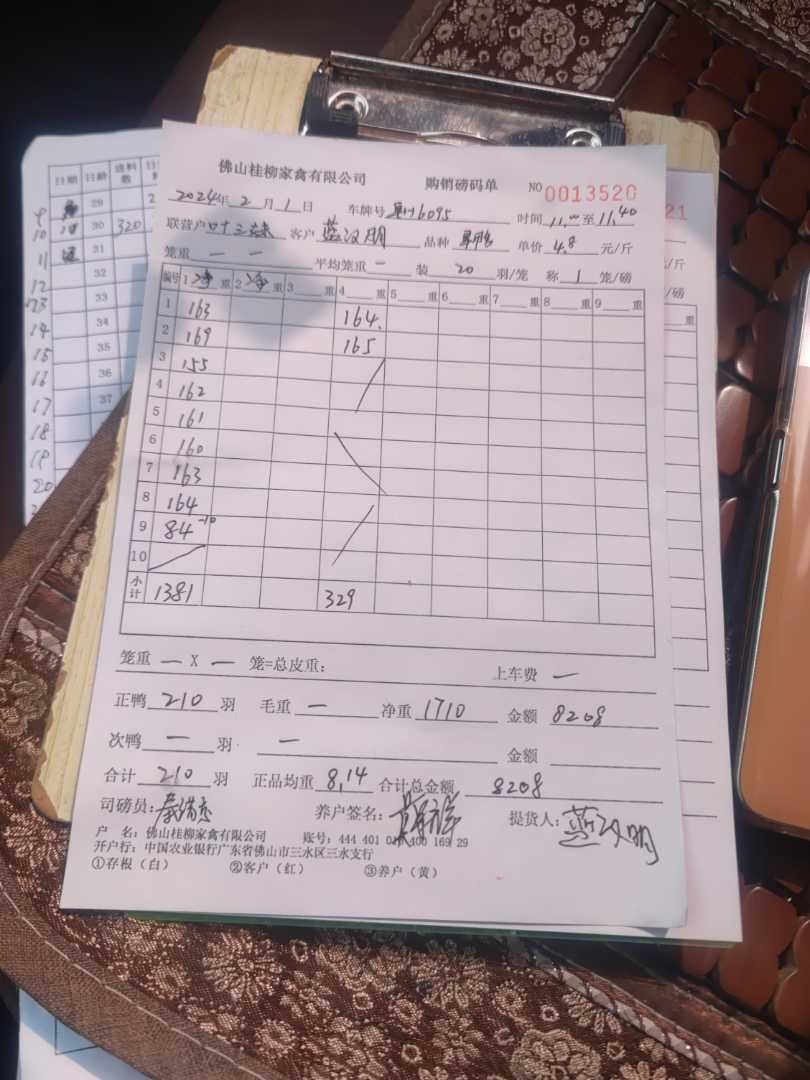 佛山桂柳家禽有限公司 购销磅码单 NO 0013520
2024年2月1日 车牌号 6095 时间 11,00至11,40
联营户 客户 蓝汉明 品种 单价 4.8 元/斤
笼重 — — 平均笼重 — 装 20 羽/笼 称 1 笼/磅
编号 1 净 重 2 净 重 3 重 4 重 5 重 6 重 7 重 8 重 9 重
1 163 164
2 169 165
3 155
4 162
5 161
6 160
7 163
8 164
9 84 -10
10
小计 1381 329
笼重 — X — 笼=总皮重: 上车费 —
正鸭 210 羽 毛重 — 净重 1710 金额 8208
次鸭 — 羽 — 金额
合计 210 羽 正品均重 8,14 合计总金额 8208
司磅员: 养户签名: 提货人: 蓝汉明
户 名: 佛山桂柳家禽有限公司 账号: 444 401 400 169 29
开户行: 中国农业银行广东省佛山市三水区三水支行
①存根(白) ②客户(红) ③养户(黄)
日期 日龄 送料数
9 29
10 30 320
11 31
12 32
13 33
14 34
15 35
16 36
17 37
18
19
20
21
元/斤
/磅
重